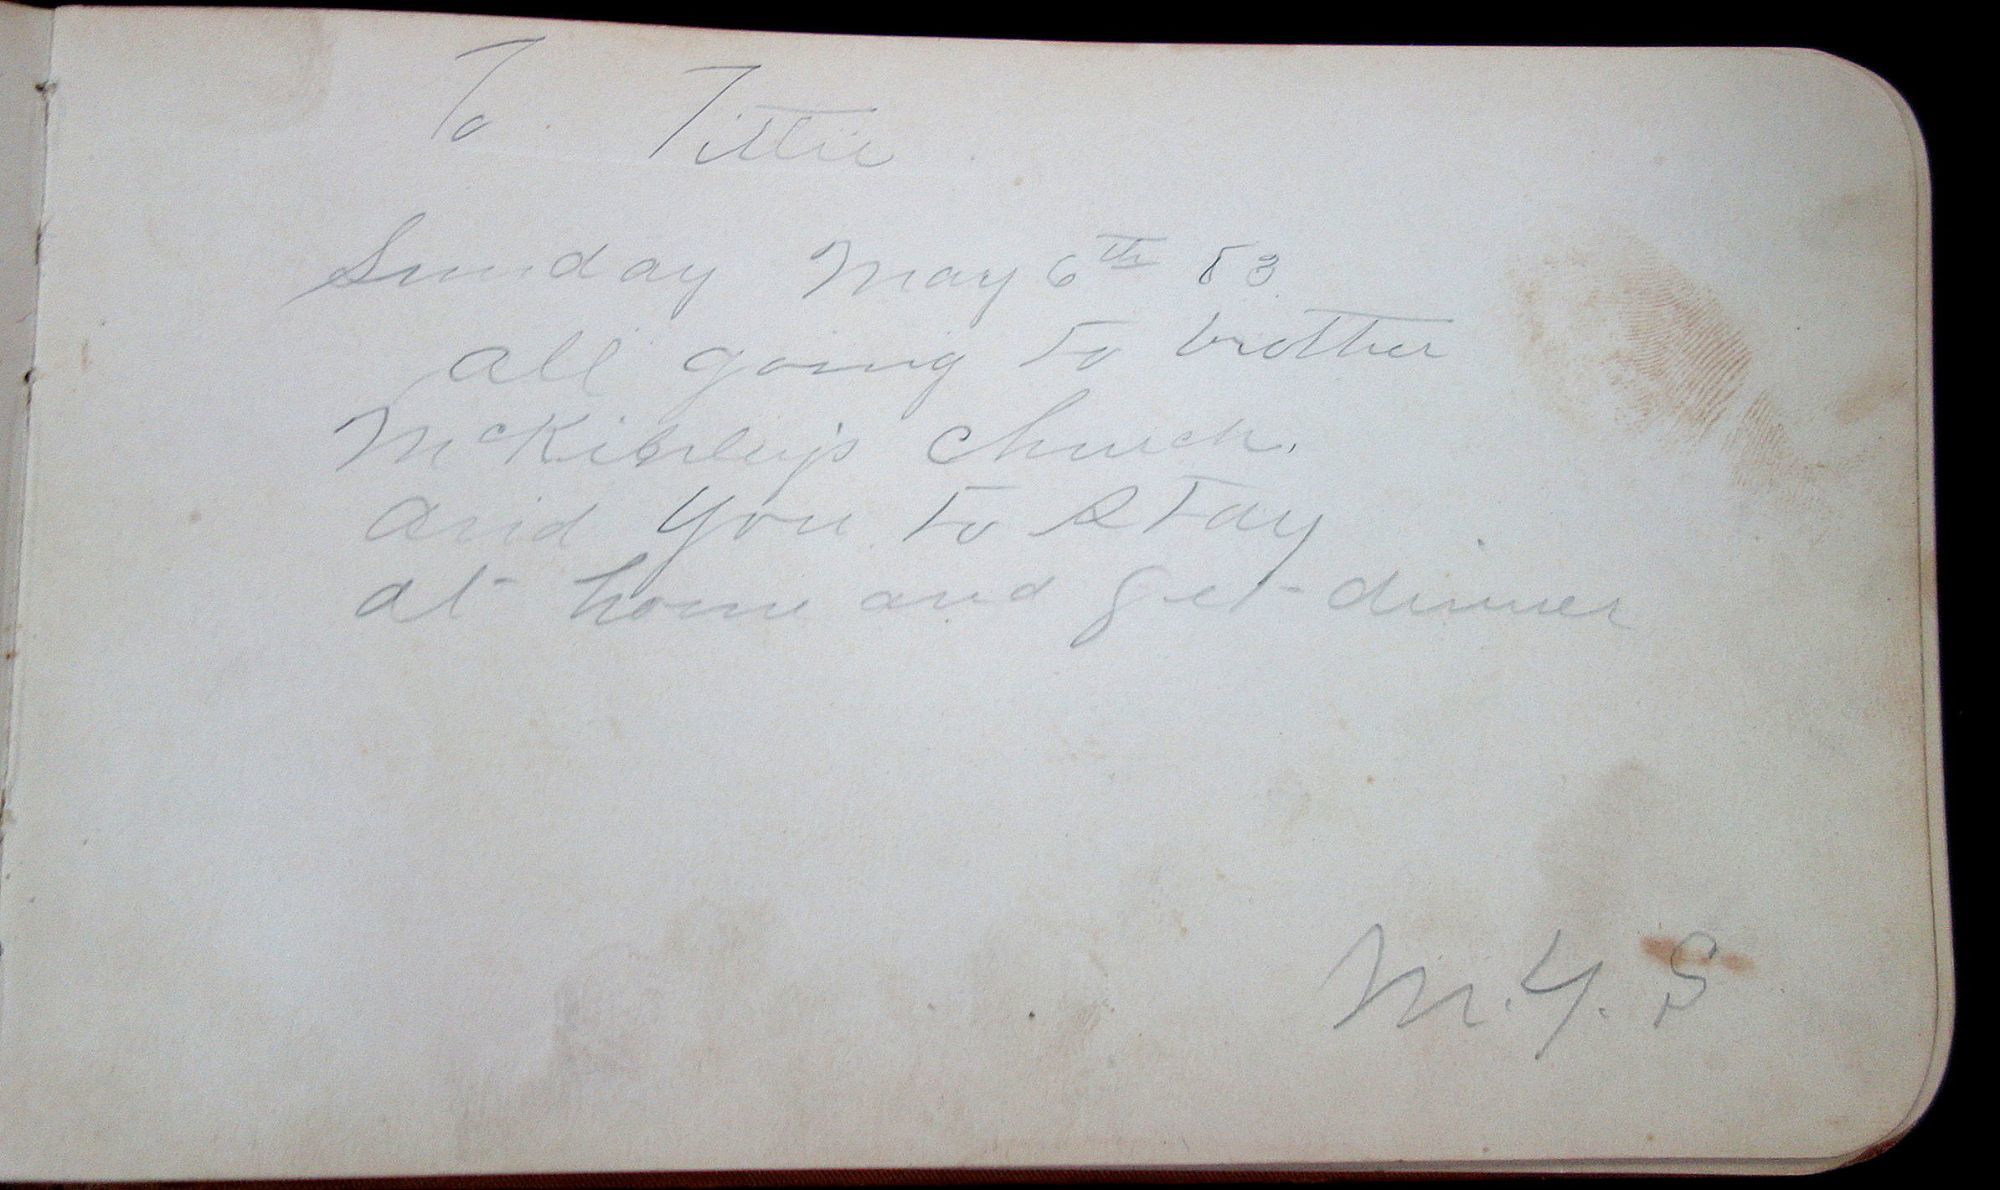 To Tittie
Sunday May 6th 83
all going to brother
church.
and you to stay
at home and get dinner
M. Y. S